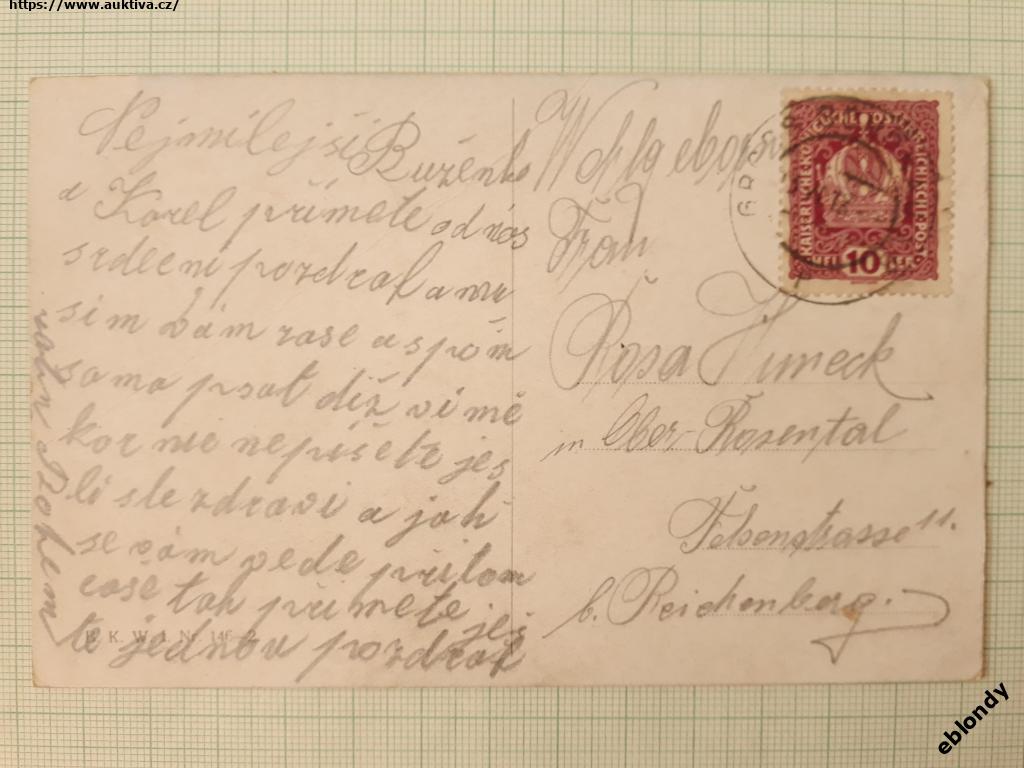 https://www.auktiva.cz/
Nejmilejši Ruženko
a Karel přimete od nás
srdečni pozdraf a mu
sim vám zase aspoň
sama psat diž vi mě
kor nic nepišete jes
li ste zdravi a jak
se vám vede při tom
čase tak přimete jej
te jednou pozdraf
Bohem
B. K. W. I. Nr.
Wohlgeborn
Frau
Rosa Huneck
in Ober-Rosental
Felsenstrasse 11.
b. Reichenberg.
KAISERLICHE KÖNIGLICHE ÖSTERREICHISCHE POST
10
eblondy